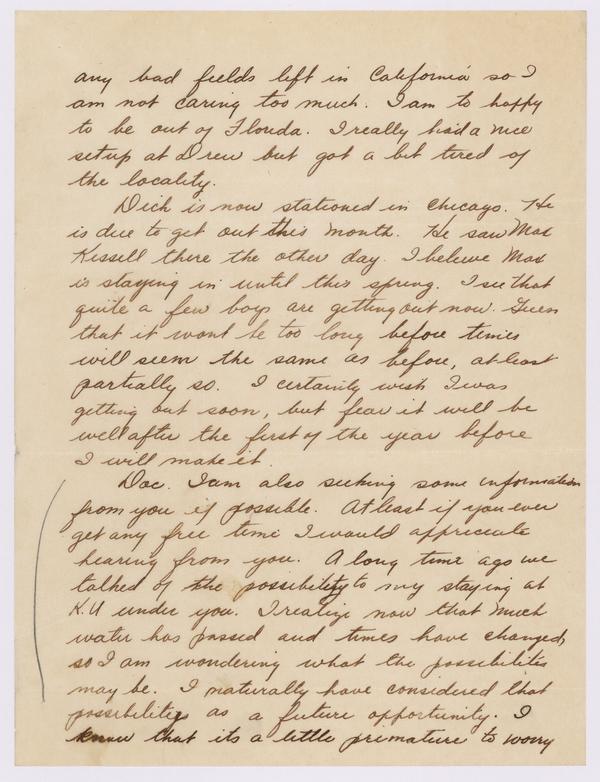 any bad fields left in California so I
am not caring too much. I am to happy
to be out of Florida. I really had a nice
setup at Drew but got a bit tired of
the locality.
Dick is now stationed in Chicago. He
is due to get out this month. He saw Max
Kissell there the other day. I believe Max
is staying in until this spring. I see that
quite a few boys are getting out now. Guess
that it wont be too long before times
will seem the same as before, at least
partially so. I certainly wish I was
getting out soon, but fear it will be
well after the first of the year before
I will make it.
Doc. I am also seeking some information
from you if possible. At least if you ever
get any free time I would appreciate
hearing from you. A long time ago we
talked of the possibility to my staying at
K.U under you. I realize now that much
water has passed and times have changed,
so I am wondering what the possibilites
may be. I naturally have considered that
possibility as a future opportunity. I
know that its a little premature to worry